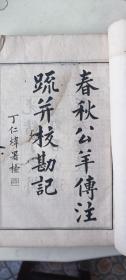 春秋公羊傳注
疏并挍勘記
丁仁煒署檢